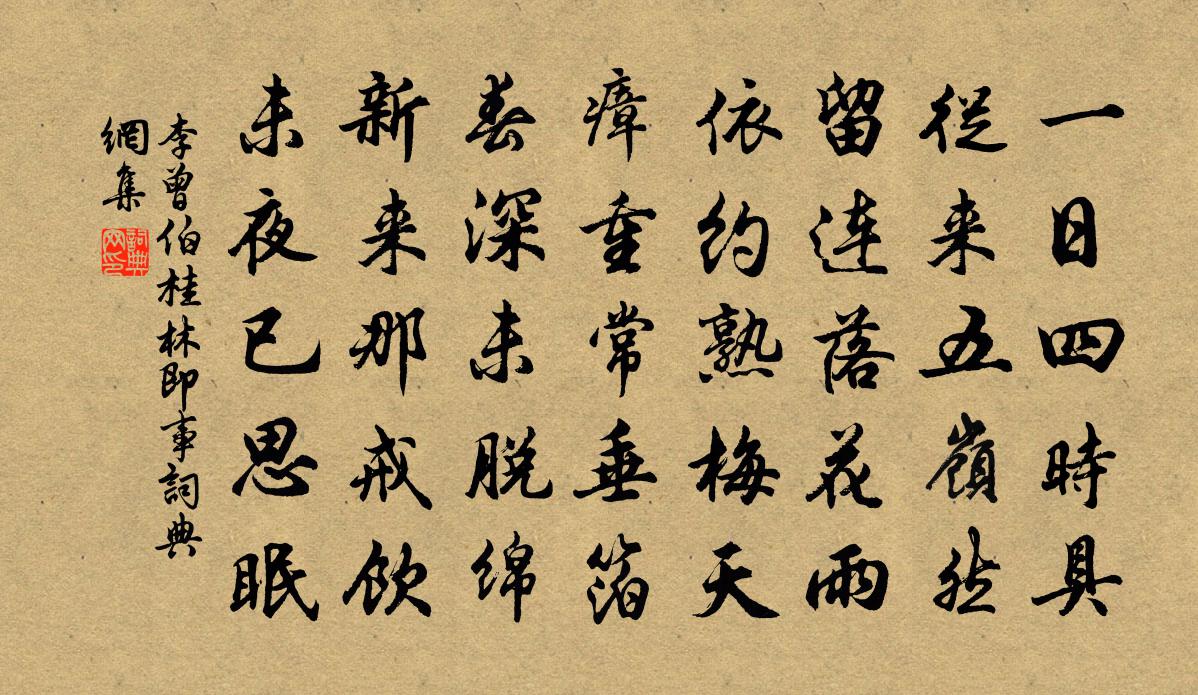 一日四時具
從来五嶺然
留連落花雨
依約熟梅天
瘴重常垂箔
春深未脱綿
新来那戒飲
未夜已思眠
李曾伯桂林即事詞典
網集
詞典
网印